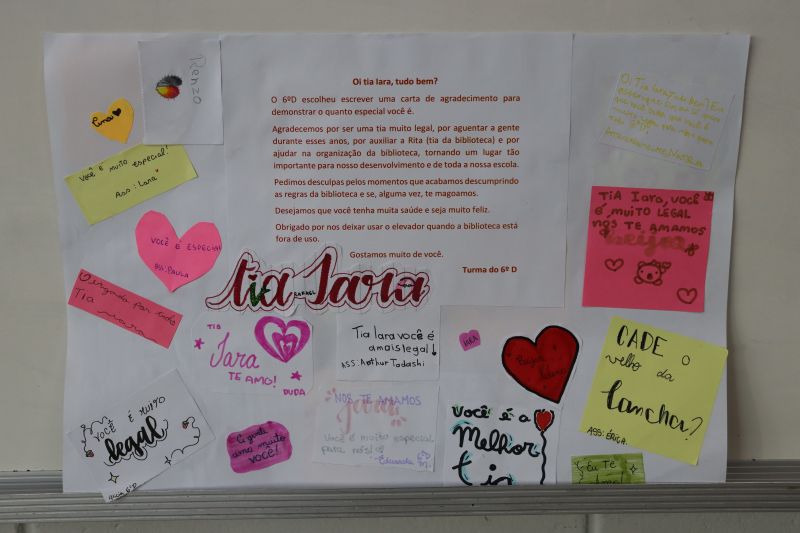 Oi tia Iara, tudo bem?
O 6ºD escolheu escrever uma carta de agradecimento para
demonstrar o quanto especial você é.
Agradecemos por ser uma tia muito legal, por aguentar a gente
durante esses anos, por auxiliar a Rita (tia da biblioteca) e por
ajudar na organização da biblioteca, tornando um lugar tão
importante para nosso desenvolvimento e de toda a nossa escola.
Pedimos desculpas pelos momentos que acabamos descumprindo
as regras da biblioteca e se, alguma vez, te magoamos.
Desejamos que você tenha muita saúde e seja muito feliz.
Obrigado por nos deixar usar o elevador quando a biblioteca está
fora de uso.
Gostamos muito de você.
Turma do 6º D
Renzo
VOCÊ É MUITO ESPECIAL!
ASS: Lara
VOCÊ É ESPECIAL
ASS: PAULA
Obrigada por tudo
TIA
Iara
tia Iara
RAFAEL
TIA
Iara
TE AMO!
DUDA
Tia Iara você é
a mais legal!
ASS: Arthur Tadashi
VOCÊ É MUITO
legal
6ºD
A gente
ama muito
VOCÊ!
NOS TE AMAMOS
você é muito especial
para nós!
Eduarda
M.
IARA
VOCÊ É A
Melhor
tia
TIA Iara, você
É MUITO LEGAL
NOS TE AMAMOS
Beijos
CADE O
velho da
lancha?
ASS: ÉRICA
Eu TE
Amo